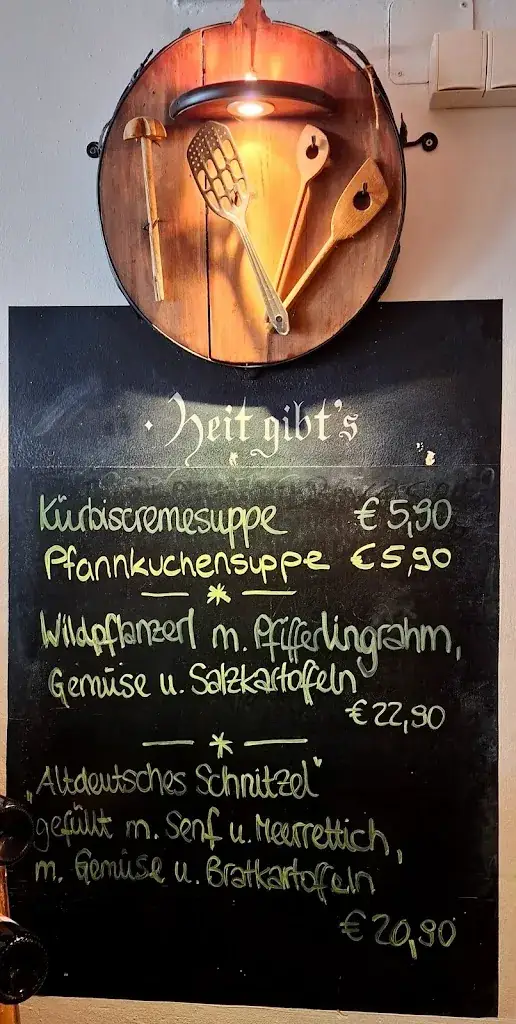 · Heit gibt's
Kürbiscremesuppe € 5,90
Pfannkuchensuppe € 5,90
Wildpflanzerl m. Pfifferlingrahm,
Gemüse u. Salzkartoffeln
€ 22,90
"Altdeutsches Schnitzel"
gefüllt m. Senf u. Meerrettich,
m. Gemüse u. Bratkartoffeln
€ 20,90